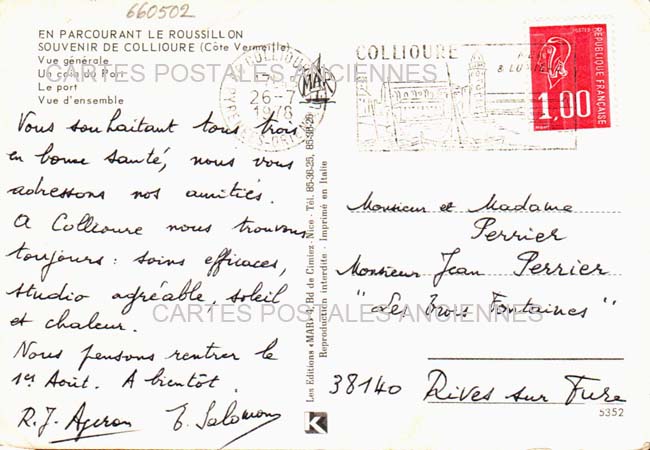 660502
EN PARCOURANT LE ROUSSILLON
SOUVENIR DE COLLIOURE (Côte Vermeille)
Vue générale
Un coin du Port
Le port
Vue d'ensemble
CARTES POSTALES ANCIENNES
COLLIOURE
26-7
1978
PYRENEES-ORIENT
MAR
COLLIOURE
REPUBLIQUE FRANÇAISE
1,00
Vous souhaitant tous trois
en bonne santé, nous vous
adressons nos amitiés.
A Collioure nous trouvons
toujours : soins efficaces,
studio agréable, soleil
et chaleur.
Nous pensons rentrer le
1er Août. A bientôt
R.J. Ageron E. Salomon
Les Editions «MAR» 4, Bd de Cimiez - Nice - Tél. 85-36-25, 85-36-26
Reproduction Interdite - Imprimé en Italie
K
Monsieur et Madame
Perrier
Monsieur Jean Perrier
"Les Trois Fontaines"
CARTES POSTALES ANCIENNES
38140 Rives sur Fure
5352